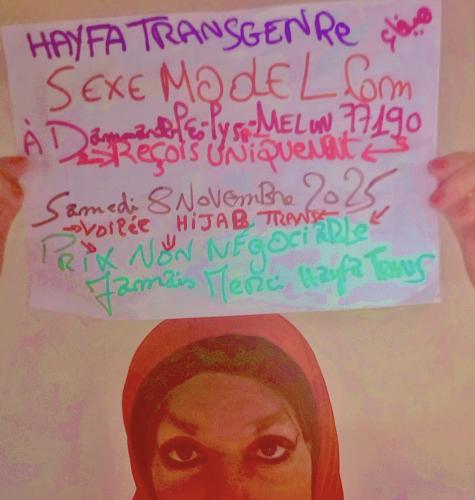 HAYFA TRANSGENRe هيفاء
SEXE MODEL.Com
À DammarieLPEo-Pyso-MELUN 77190
→REÇOIS UNIQUEMENT←
Samedi 8 Novembre 2025
→VOIRÉE HIJAB TRANS←
PRIX NON NÉGOCIABLE
Jamais Merci Hayfa TRANS